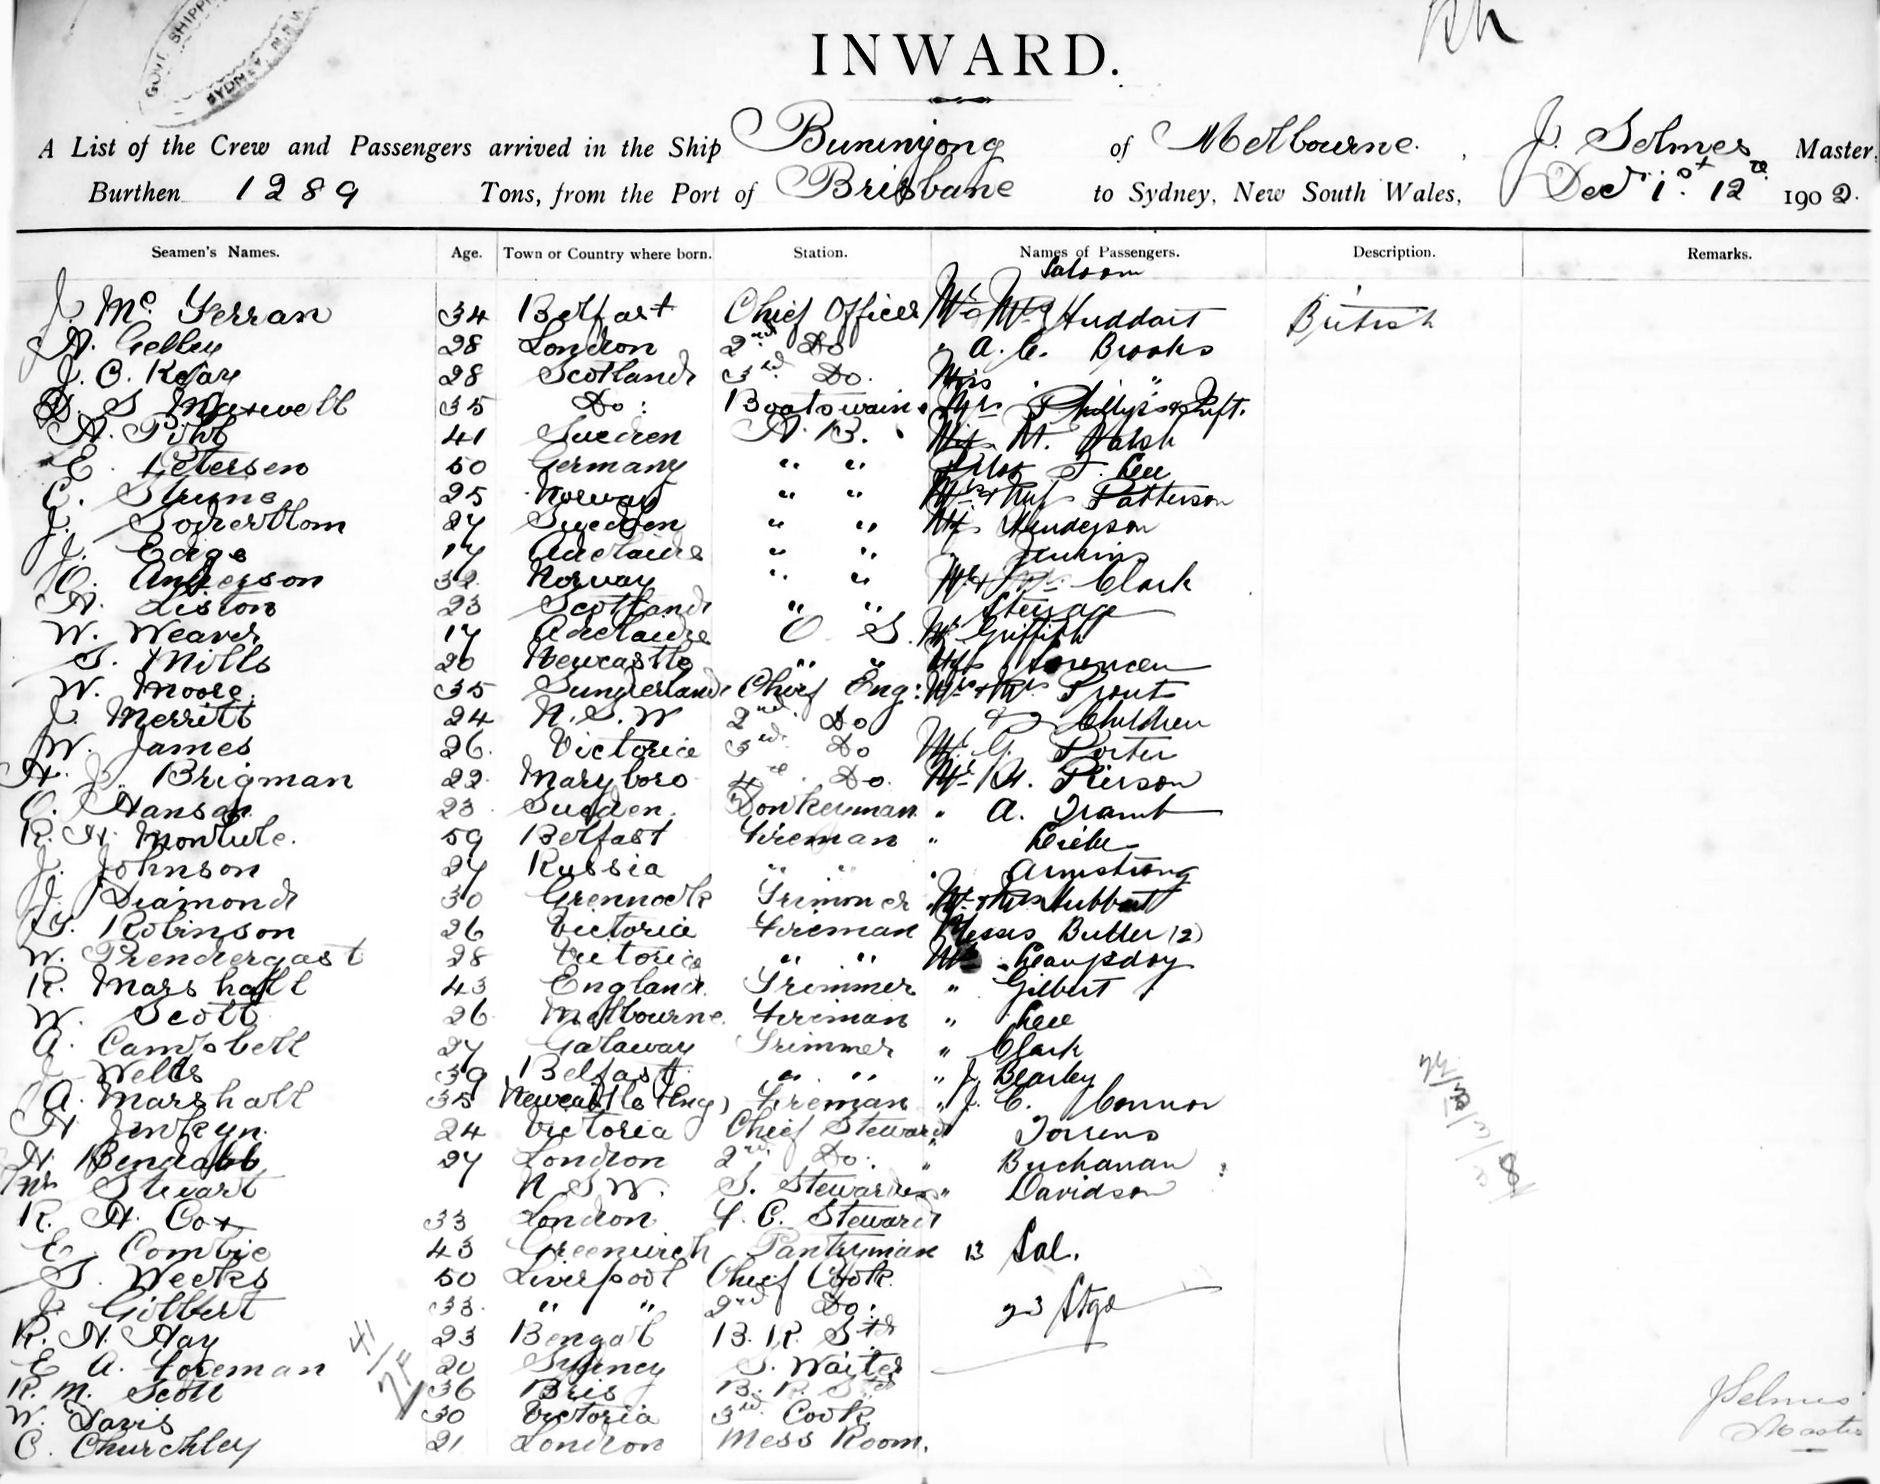 GOVT SHIPPI
SYDNEY N.S.W.
INWARD.
A List of the Crew and Passengers arrived in the Ship Buninyong of Melbourne. , J. Selmes Master,
Burthen 1289 Tons, from the Port of Brisbane to Sydney, New South Wales, Decr 1st 12 1902.
Seamen's Names. Age. Town or Country where born. Station. Names of Passengers. Description. Remarks.
Saloon
J. Mc Ferran 34 Belfast Chief Officer Mr Mrs Huddart British
A. Gelley 28 London 2nd Do " A. C. Brooks
J. O. 28 Scotland 3rd Do. Miss "
S Maxwell 35 Do: Boatswain. Mrs Phillips &
A. Pihl 41 Sweden A. B. M. Walsh
E. Petersen 50 Germany " " J. Lee
C. 25 Norway " " Patterson
J. Soderblom 27 Sweden " " Henderson
J. Edge 17 Adelaide " " Jenkins
C. Anderson 32 Norway " " Mr & Mrs Clark
A. Liston 23 Scotland " " Steerage
W. Weaver 17 Adelaide O. S. Mr Griffith
S. Mills 20 Newcastle " " Sorencen
W. Moore. 35 Sunderland Chief Eng: Mr & Mrs Prout
J. Merritt 24 N. S. W 2nd Do & 2 Children
W. James 26. Victoria 3rd Do Mr. G. Porter
A. J. Brigman 22 Maryboro 4th Do. Mr H. Pierson
O. Hanson 23 Sweden. Donkeyman " A.
R. H. 59 Belfast Fireman "
J. Johnson 27 Russia " " " Armstrong
J. Diamond 30 Grennock Trimmer Mr & Mrs Hubbert
G. Robinson 26 Victoria Fireman Messrs Butler (2)
W. Prendergast 28 Victoria " " Mr
R. Marshall 43 England Trimmer " Gilbert
W. Scott 26 Melbourne. Fireman " Lee
A. Campbell 27 Galaway Trimmer " Clark
J. Wells 39 Belfast " " " J.
A. Marshall 35 Newcastle (Eng) Fireman " J. C. Connor
H Jenkyn 24 Victoria Chief Steward Torrens
H. Bendall 27 London 2nd Do: " Buchanan
Mrs Stuart N S W. S. Stewardess " Davidson
R. H. Cox 33 London F. C. Steward
E. Combie 43 Greenwich Pantryman 13 Sal.
S. Weeks 50 Liverpool Chief Cook
J. Gilbert 33. " " 2nd Do: 23 Stge
R. H. Hay 23 Bengal B. R. Std
E A. Foreman 20 Sydney S. Waiter
R. M. Scott 36 Bris B. R. Std
W. Davis 30 Victoria 3rd Cook
C. Churchley 21 London Mess Room.
J Selmes
Master